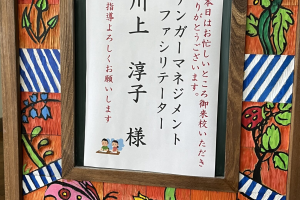 本日はお忙しいところ御来校いただき
ありがとうございます。
アンガーマネジメント
ファシリテーター
川上 淳子 様
指導よろしくお願いします